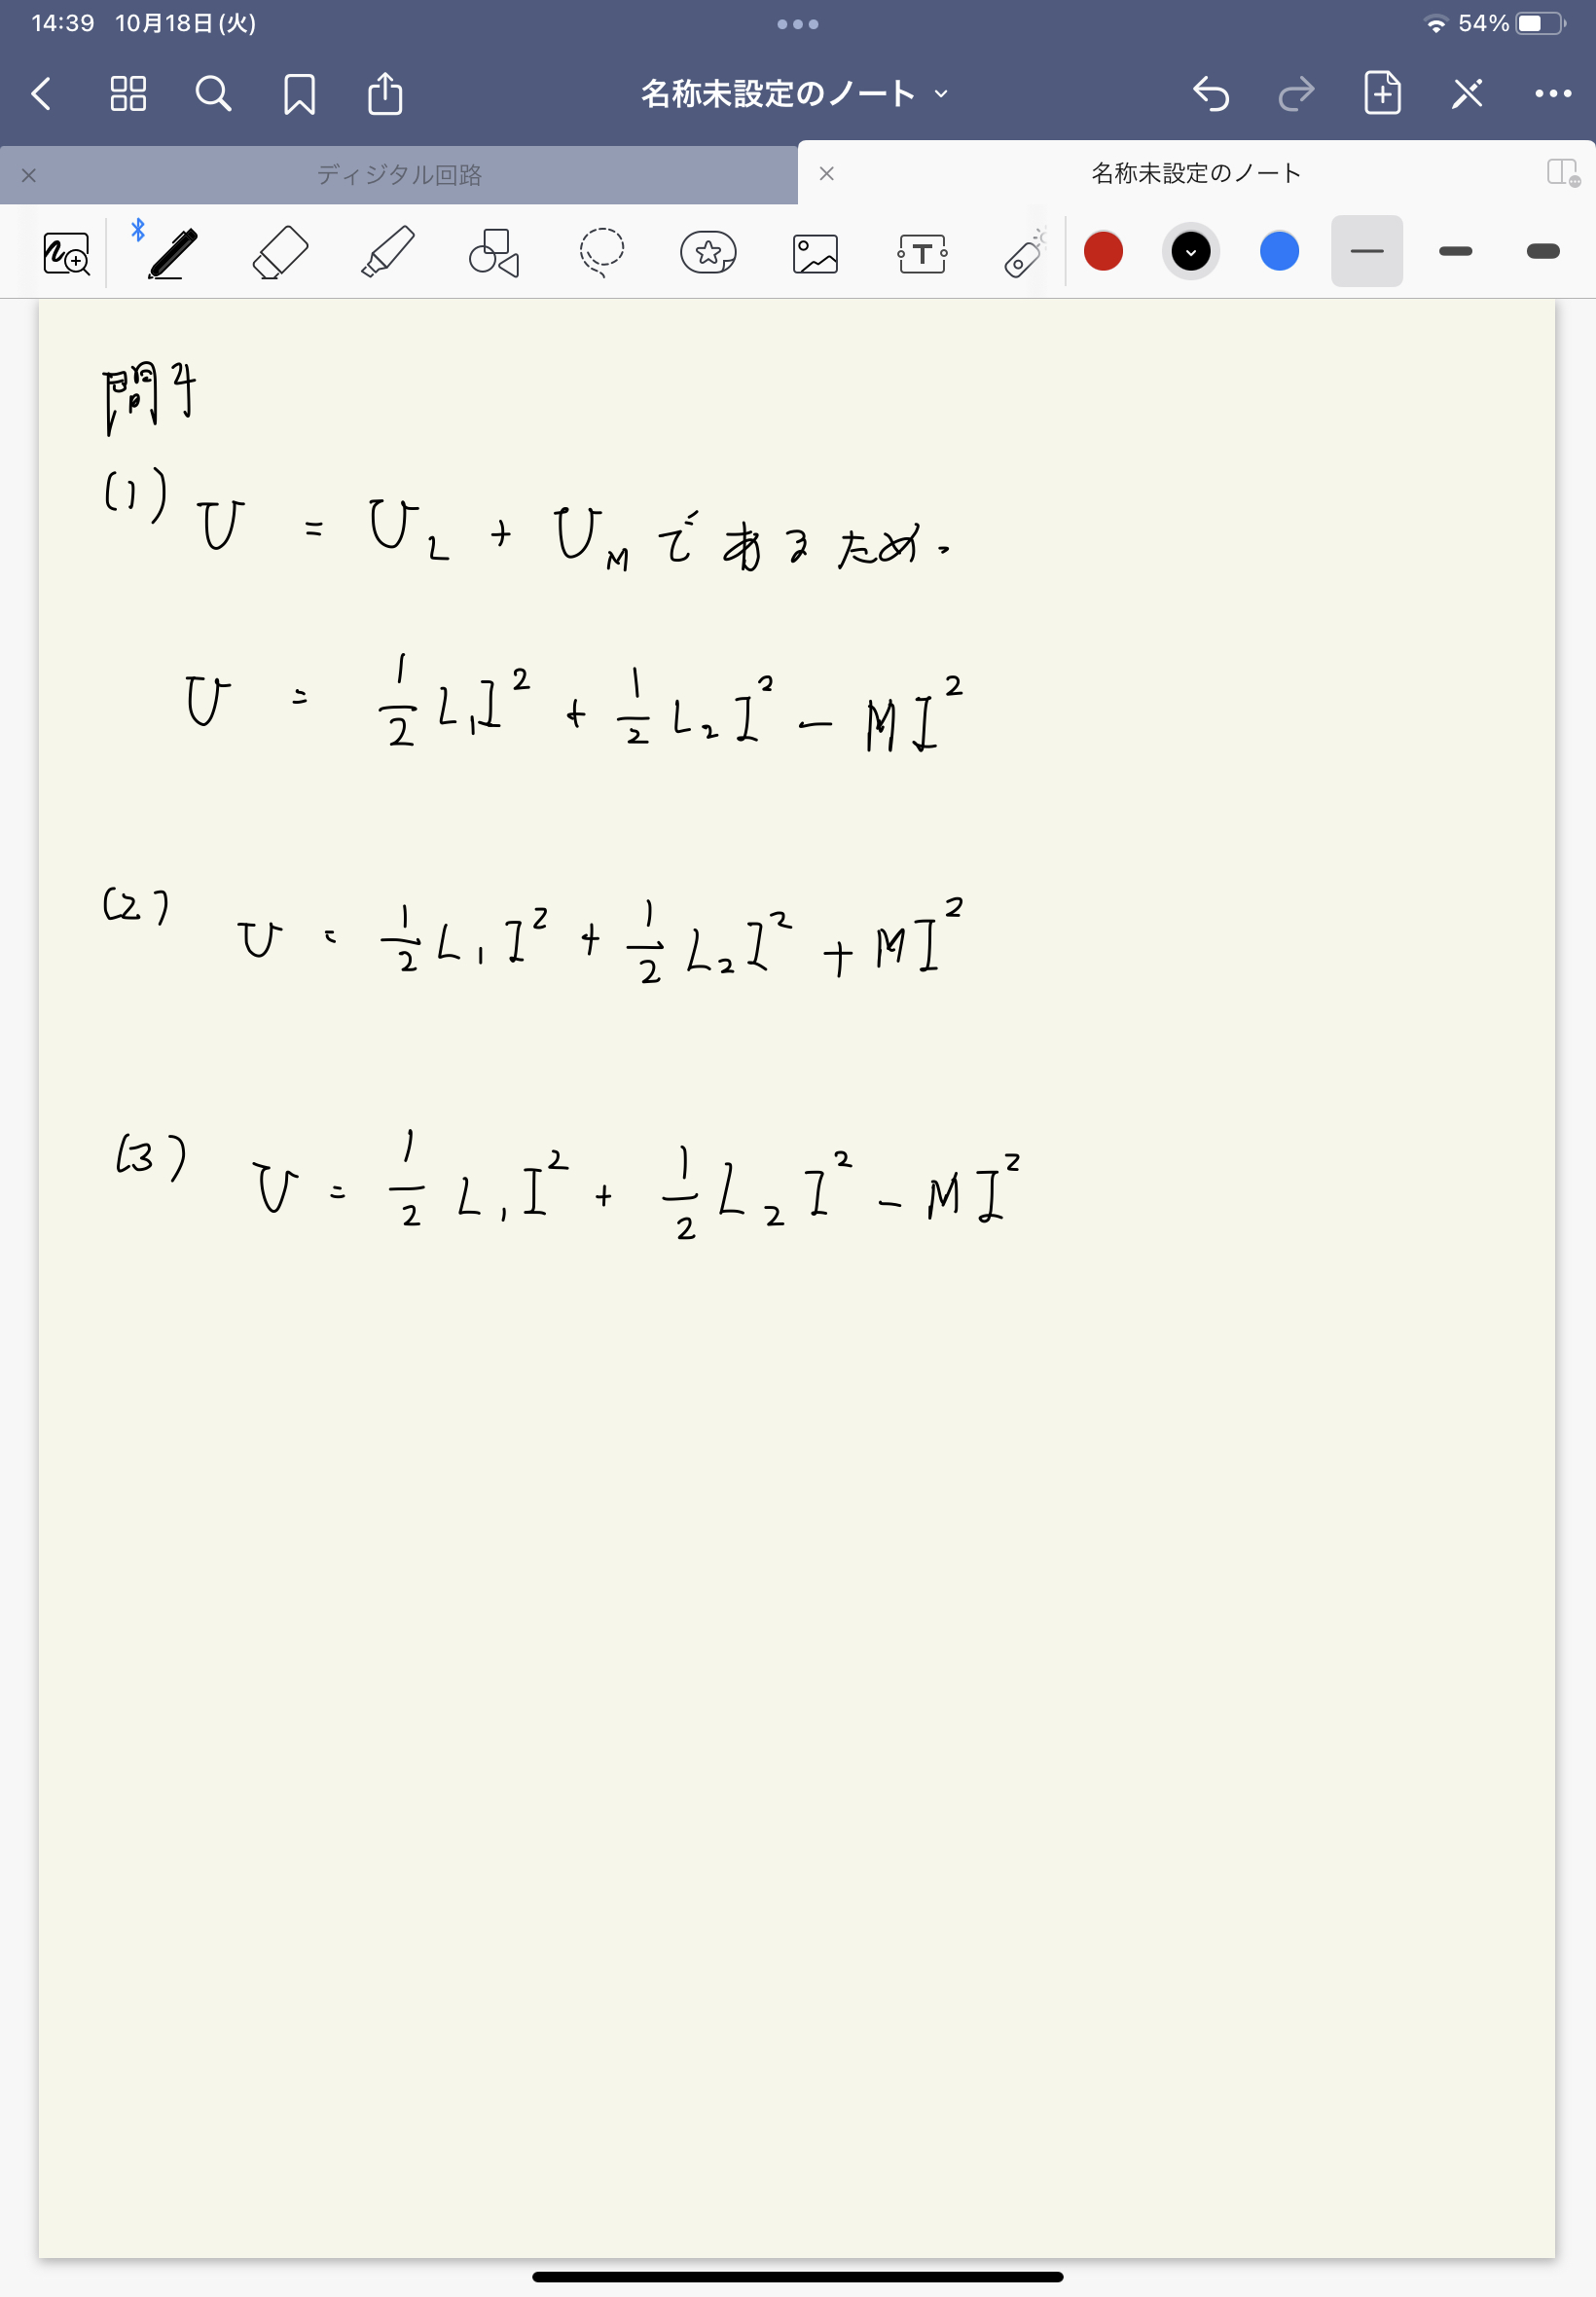 14:39 10月18日(火) 54%
名称未設定のノート
ディジタル回路 名称未設定のノート
問4
(1) U = U_L + U_M であるため.
U = 1/2 L₁I² + 1/2 L₂I² - MI²
(2) U = 1/2 L₁I² + 1/2 L₂I² + MI²
(3) U = 1/2 L₁I² + 1/2 L₂I² - MI²